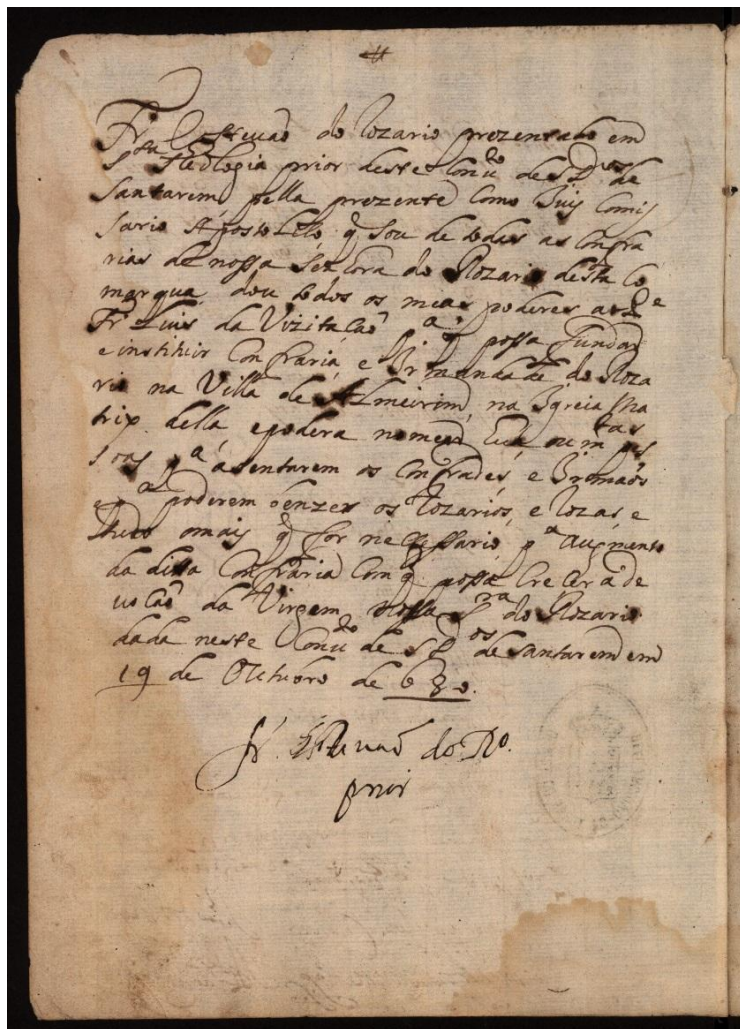 Fr. Esteuaõ do Rozario prezentado em
S.ta theologia prior deste Conu.to de S. D.os de
Santarem, pella prezente Como Juis Comis
sario Apostolico, q̃ sou de todas as Confra
rias de nossa Senhora do Rozario desta Co
marqua, dou todos os meus poderes ao P.e
Fr. Luis da Vizitacaõ p.a q̃ possa fundar
e instituir Confraria, e Irmandade do Roza
rio na Villa de Almeirim, na Igreia Ma
triz della, e podera nomear hũa, ou m.tas pes
soas p.a asentarem os Confrades, e Irmaõs
e p.a poderem benzer os Rozarios, e Rozas, e
tudo omais q̃ for nessessario p.a augmento
da ditta Confraria Com q̃ possa Crecer a de
uocaõ da Virgem Nossa S.ra do Rozario
dada neste Conu.to de S. D.os de Santarem em
19 de Outubro de 630.
fr. Esteuaõ do Ro.
prior